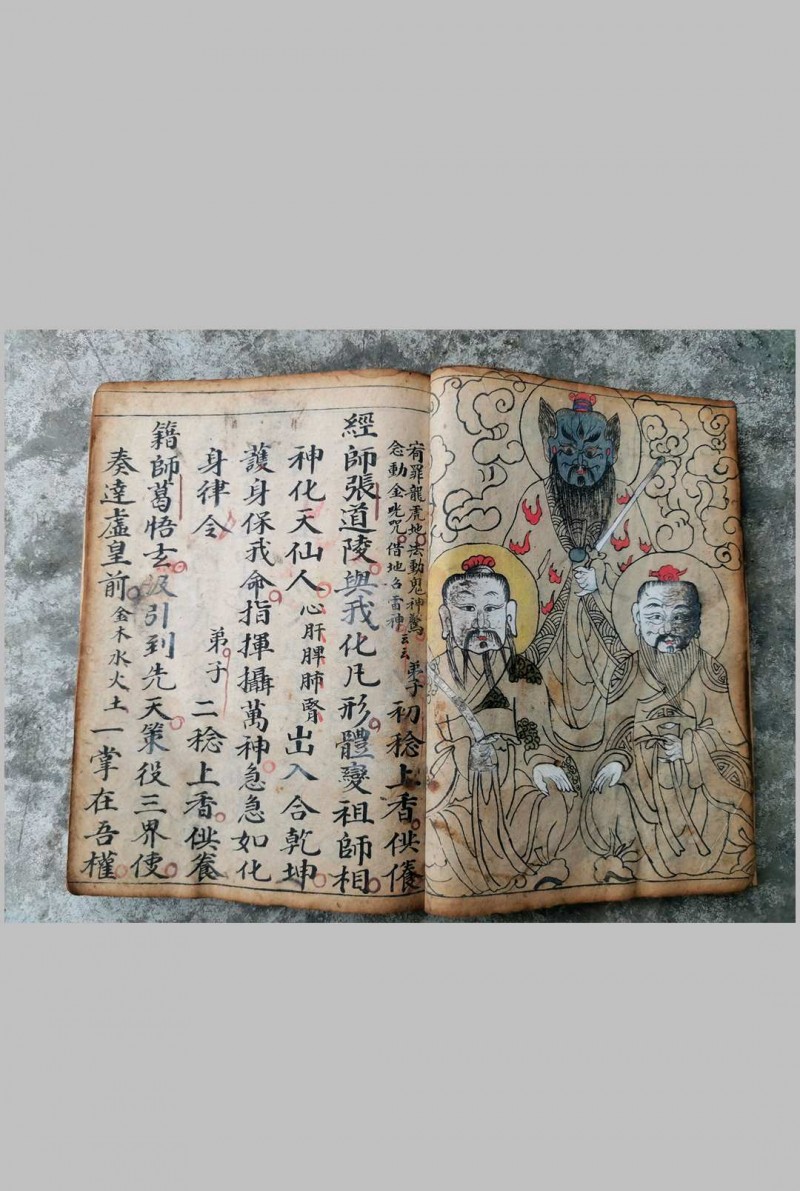 宥罪龍虎地法動鬼神驚
念動金光咒借地召雷神云云
弟子初稔上香供養
經師張道陵與我化凡形體變祖師相
神化天仙人心肝脾肺腎出入合乾坤
護身保我命指揮攝萬神急急如化
身律令弟子二稔上香供養
籍師葛悟去汲引到先天策役三界使
奏達虛皇前金木水火土一掌在吾權